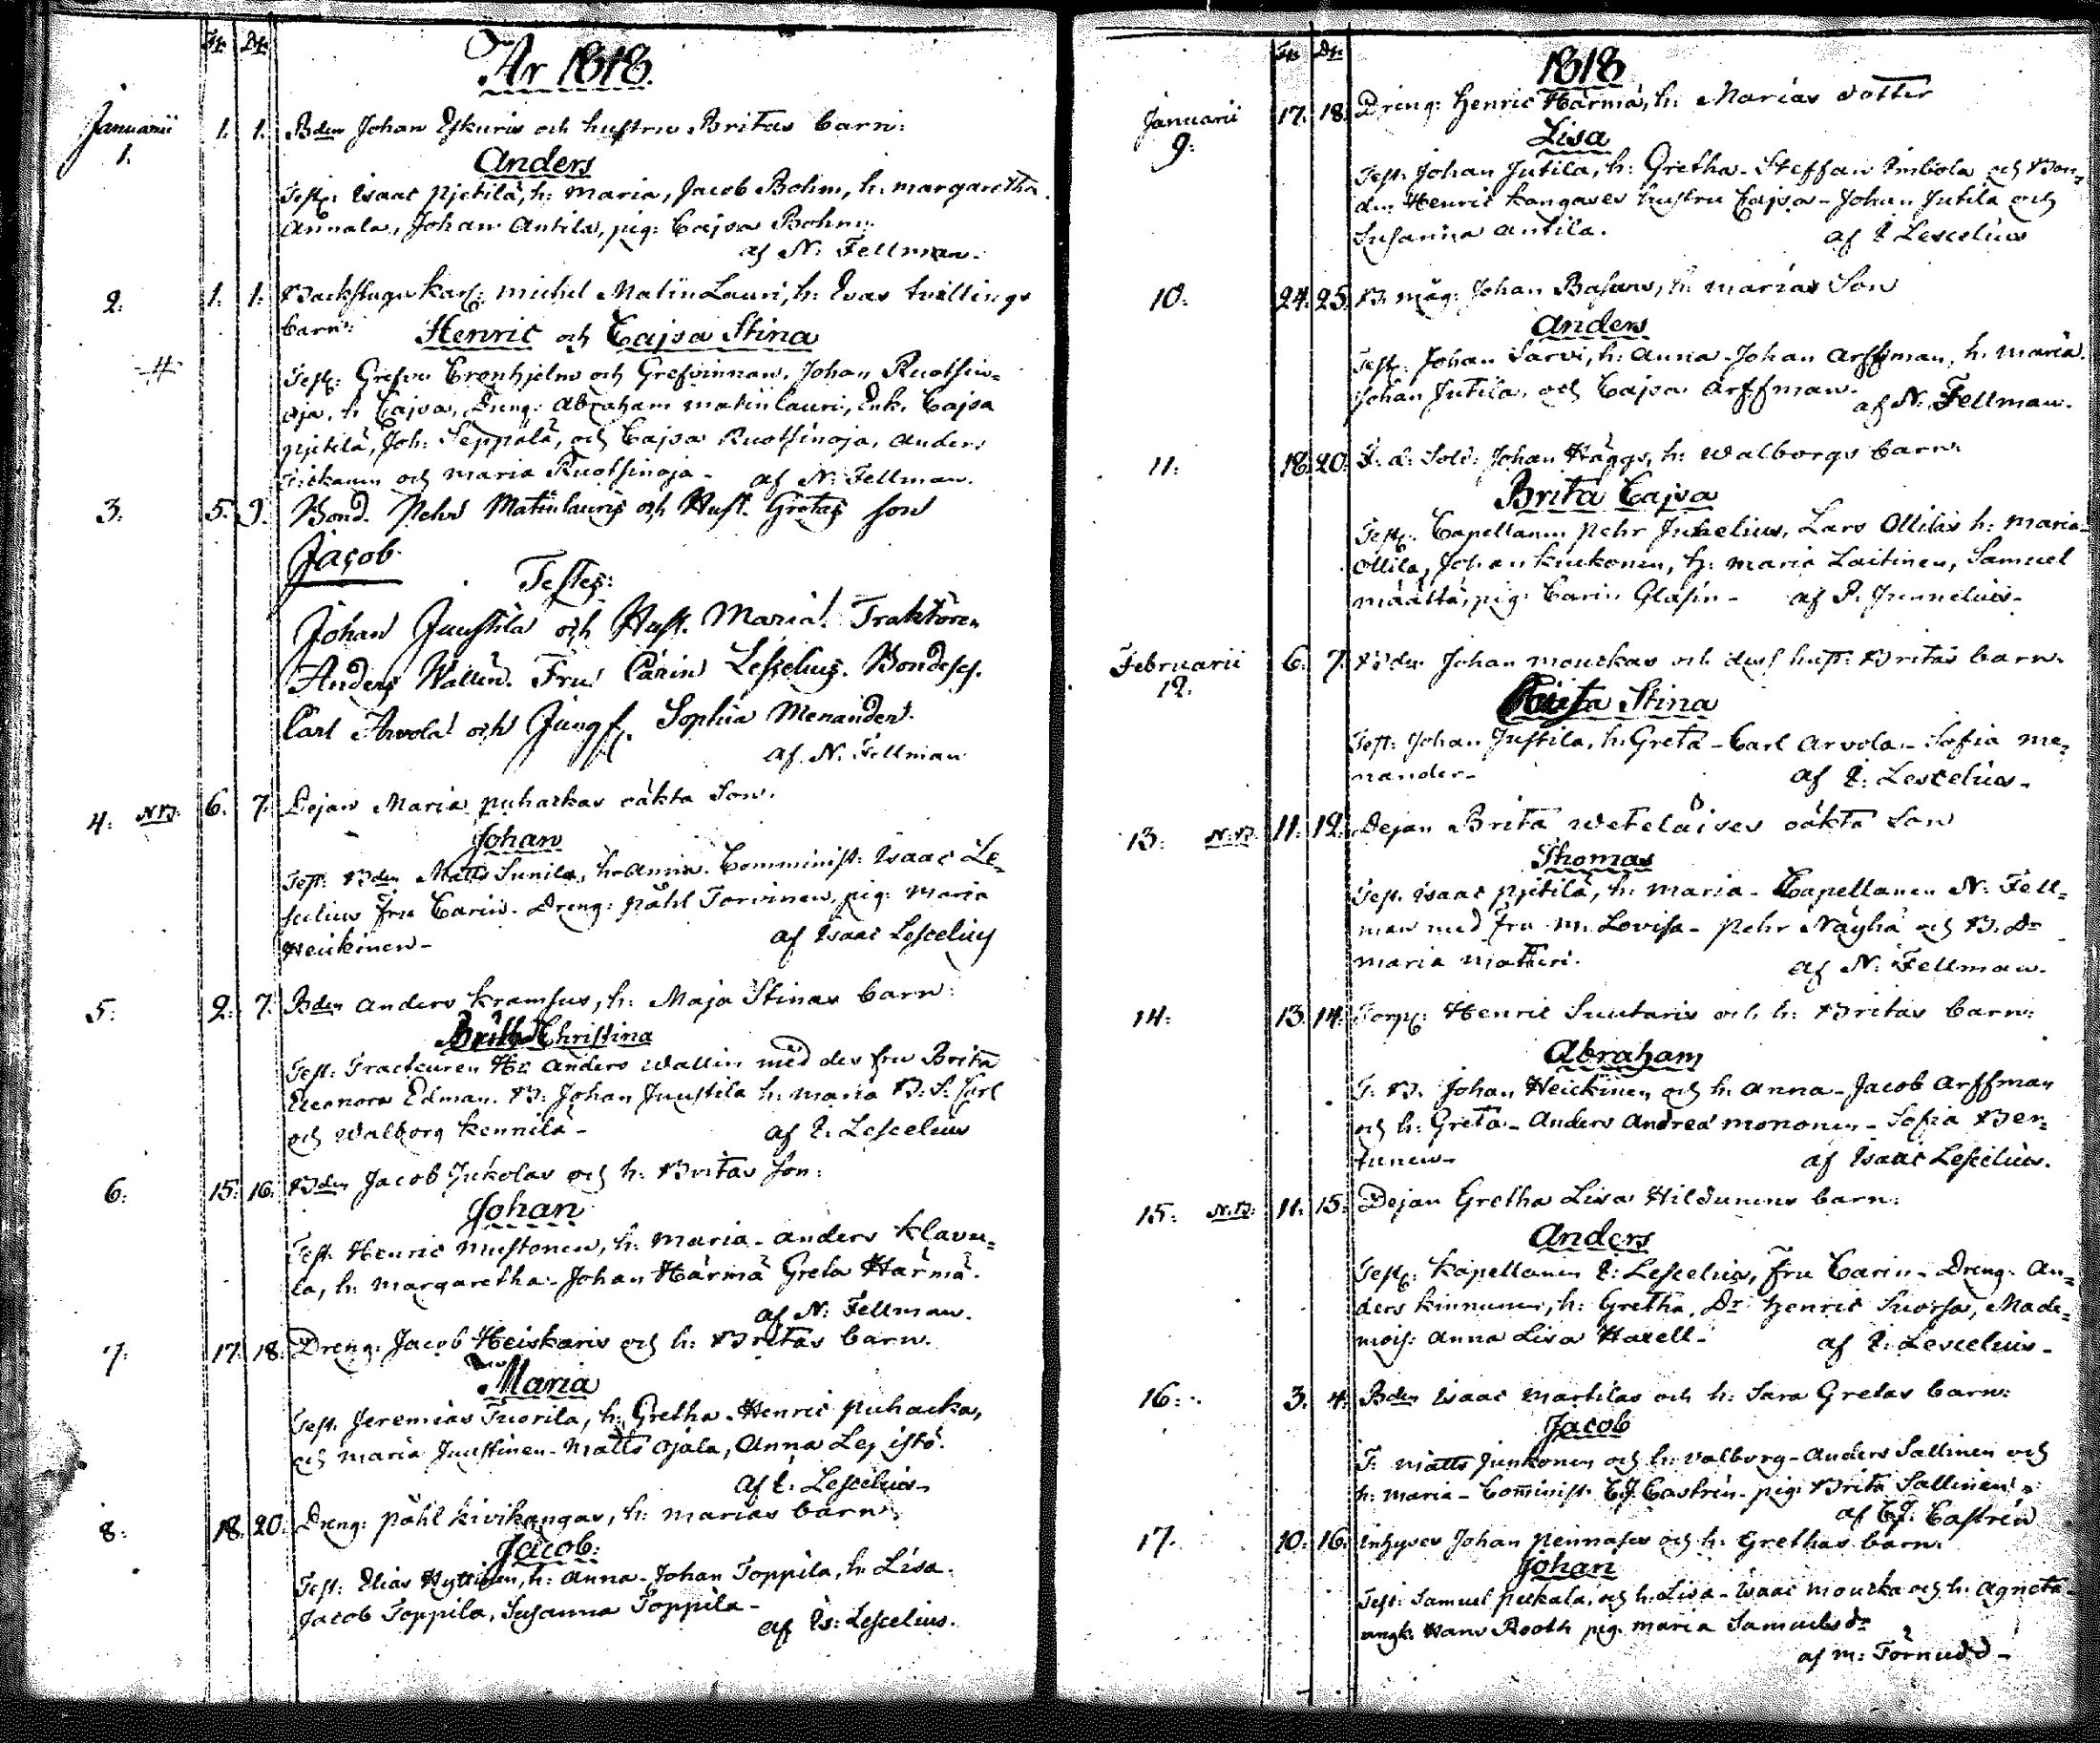 Fp. Dp.
År 1818.
Januarii 1. 1. 1. Bden Johan Eskuris och hustru Britas barn:
Anders
Test: Isaac Pjetilä, h: Maria, Jacob Bohm, h: margaretha
Annala, Johan Antila, pig: Cajsa Bohm.
af N: Fellman.
2. 1. 1. Backstugu karl: Michel Matin Lauri, h: Evas tvillings
barn: Henric och Cajsa Stina
Test: Grefve Cronhjelm och Grefvinnan. Johan Ruotsin-
oja, h: Cajsa, Dreng: Abraham matinlauri, Enk. Cajsa
pjetilä, Joh: Seppälä, och Cajsa Ruotsinoja, Anders
och maria Ruotsinoja - af N: Fellman.
3. 5. 9. Bond. Pehr Matinlauris och Hust. Gretas son
Jacob
Testes:
Johan Juustila och Hust. Maria. Traktören
Anders Wallin. Fru Carin Lescelius. Bondeson
Carl Arvola och Jungf. Sophia Menander.
af N: Fellman
4. NB: 6. 7. Dejan Maria puhackas oäkta Son.
Johan
Test: Bden Matts Sunila, h: Anna. Comminist: Isaac Le-
scelius fru Carin. Dreng: påhl Torvinen, pig: Maria
Heickinen - af Isaac Lescelius
5. 2. 7. Bden Anders Kramsus, h: Maja Stinas barn:
Brita Christina
Test: Tracteuren Hr Anders Wallin med des fru Brita
Eleonora Edman. B: Johan Juustila h: maria B: S: Carl
och Walborg Kennilä - af I: Lescelius
6. 15. 16. Bden Jacob Jukolas och h: Britas Son:
Johan
Test: Henric mustonen, h: maria - Anders Klavu-
la, h: margaretha - Johan Härmä Greta Härmä.
af N: Fellman.
7. 17. 18. Dreng: Jacob Heiskaris och h: Britas barn.
Maria
Test: Jeremias Tuorila, h: Gretha - Henric puhacka,
och maria Juustinen - Matts Ojala, Anna Lepistö.
af I: Lescelius -
8. 18. 20. Dreng: påhl Kivikangas, h: marias barn:
Jacob:
Test: Elias Hyttinen, h: Anna - Johan Toppila, h: Lisa.
Jacob Toppila, Susanna Toppila -
af Is: Lescelius.
Fp. Dp.
1818
Januarii 9. 17. 18. Dreng: Henric Härmä, h: Marias dotter
Lisa
Test: Johan Jutila, h: Gretha - Steffan Imbola och Bon-
den Henric Kangases hustru Cajsa - Johan Jutila och
Susanna Antila. af I Lescelius
10. 24. 25. B. måg: Johan Basans, h: marias Son
Anders
Test: Johan Sarvi, h: Anna - Johan Arffman, h: maria.
Johan Jutila, och Cajsa Arffman. af N: Fellman.
11. 18. 20. F: d: Sold: Johan Häggs, h: Walborgs barn:
Brita Cajsa
Test: Capellanen pehr Junelius, Lars Ollilas h: maria -
Ollila, Johan Kuukonen, h: maria Laitinen, Samuel
määttä, pig: Carin Glasin - af P. Junnelius -
Februarii 12. 6. 7. Bden Johan mourkas och dess hust: Britas barn.
Brita Stina
Test: Johan Justila, h: Greta - Carl Arvola - Sofia me-
nander - af I: Lescelius -
13. N:B: 11. 12. Dejan Brita Weteläises oäkta Son
Thomas
Test: Isaac Pjetilä, h: maria - Capellanen N: Fell-
man med fru M: Lovisa - Pehr Näyhä och B. Dr
maria matturi. af N: Fellman.
14. 13. 14. Torp: Henric Suutaris och h: Britas barn:
Abraham
T: B: Johan Heickinen och h: Anna - Jacob Arffman
och h: Greta - Anders Andrea mononen - Sofia Ber-
tunen - af Isaac Lescelius.
15. N:B: 11. 15. Dejan Gretha Lisa Hildunens barn:
Anders
Test: Kapellanen I: Lescelius, fru Carin - Dreng: An-
ders Kinnunen, h: Gretha, Dr Henric Suorsa, Made-
mois: Anna Lisa Haxell - af I: Lescelius -
16. 3. 4. Bden Isaac Martilas och h: Sara Gretas barn:
Jacob
T: Matts Junkonen och h: Valborg - Anders Sallinen och
h: maria - Cominist: CJ. Castrén - pig: Brita Sallinen
af CJ: Castrén
17. 10. 16. Inhyses Johan Pennases och h: Grethas barn:
Johan
Test: Samuel Peckala, och h: Lisa - Isaac mourka och h: Agneta -
ungk: Hans Rooth pig: maria Samuelsdr
af M: Törnudd -